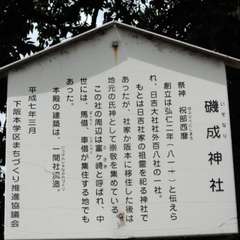 磯成神社
祭神　祝部西麿
創立は弘仁二年（八一一）と伝えら
れ、日吉大社社外百八社の一社。
もとは日吉社家の祖霊を祀る神社で
あったが、社家が阪本に移住した後は
地元の氏神として崇敬を集めている。
この社の周辺は富ケ崎と呼ばれ、中
世には、馬借、車借が集住する地でも
あった。
本殿の建築は、一間社流造。
平成七年三月
下阪本学区まちづくり推進協議会